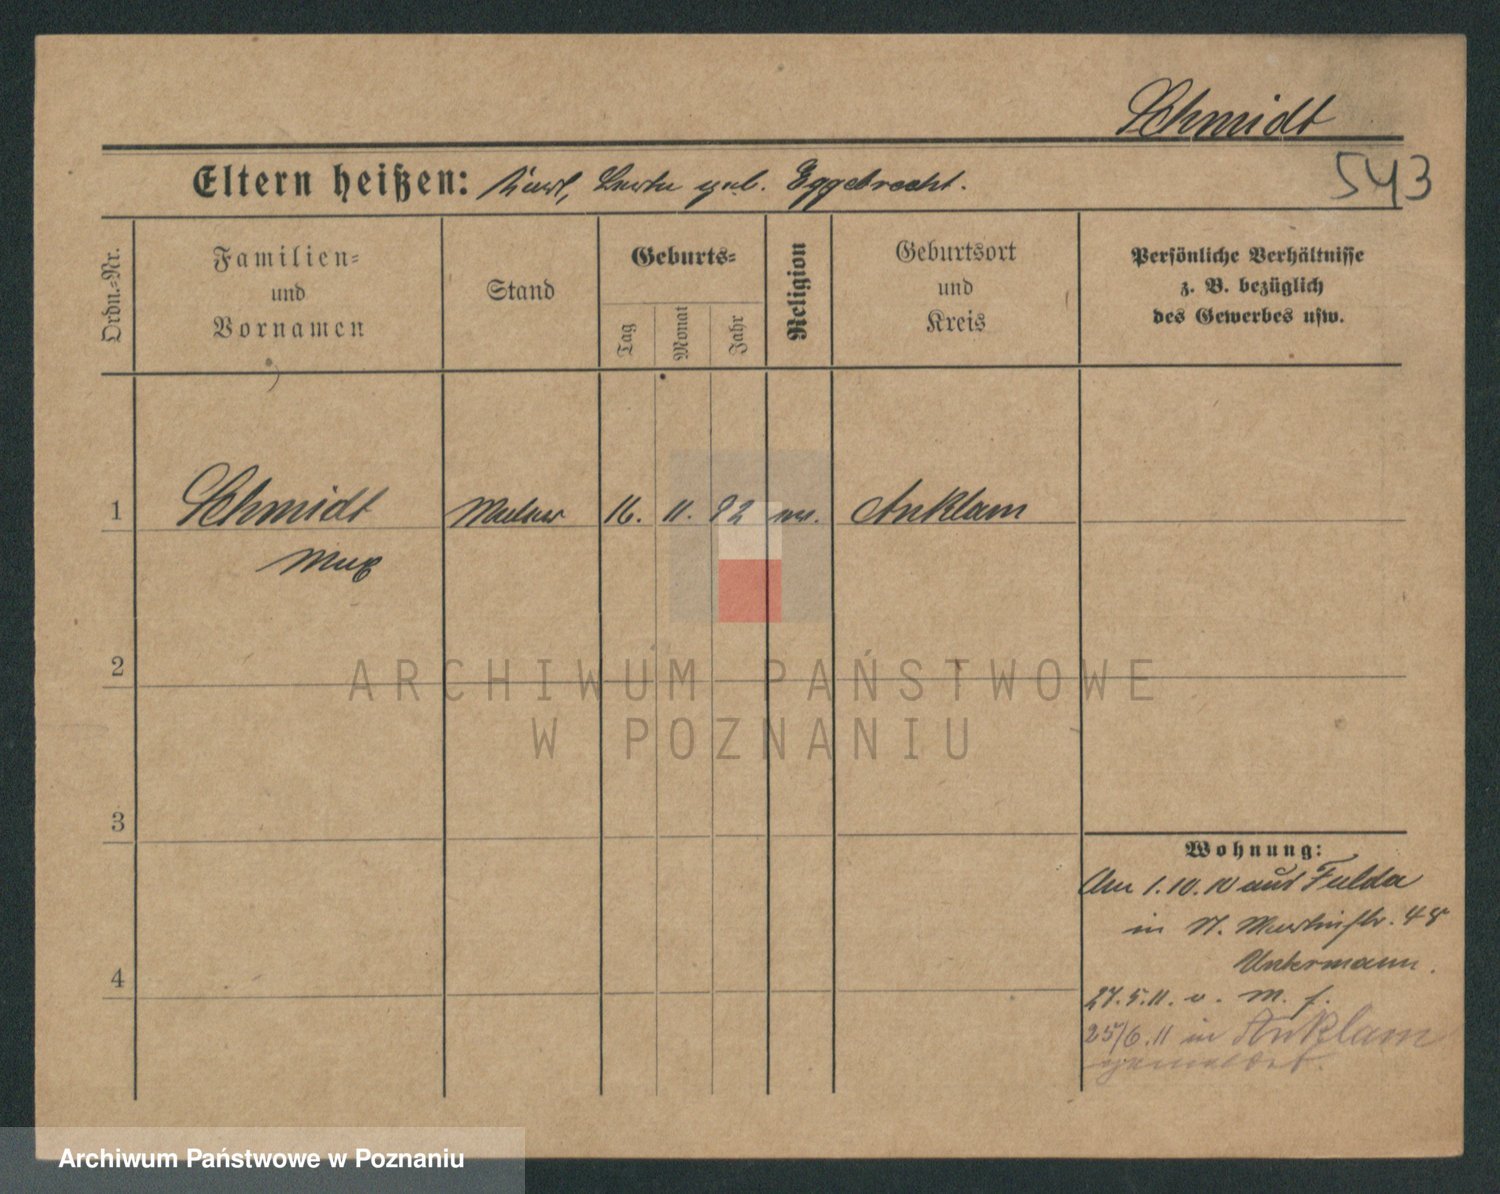 Schmidt
Eltern heißen: Karl, Berta geb. Eggebrecht.
543
Ordn.=Nr.
Familien=
und
Vornamen
Stand
Geburts=
Tag
Monat
Jahr
Religion
Geburtsort
und
Kreis
Persönliche Verhältnisse
z. B. bezüglich
des Gewerbes usw.
1 Schmidt Maler 16. 11. 92 ev. Anklam
Max
2
ARCHIWUM PAŃSTWOWE
W POZNANIU
3
Wohnung:
Am 1.10.10 aus Fulda
in St. Martinstr. 48
Untermann.
4
27.5.11. v. M. f.
25/6.11 in Anklam
gemeldet.
Archiwum Państwowe w Poznaniu